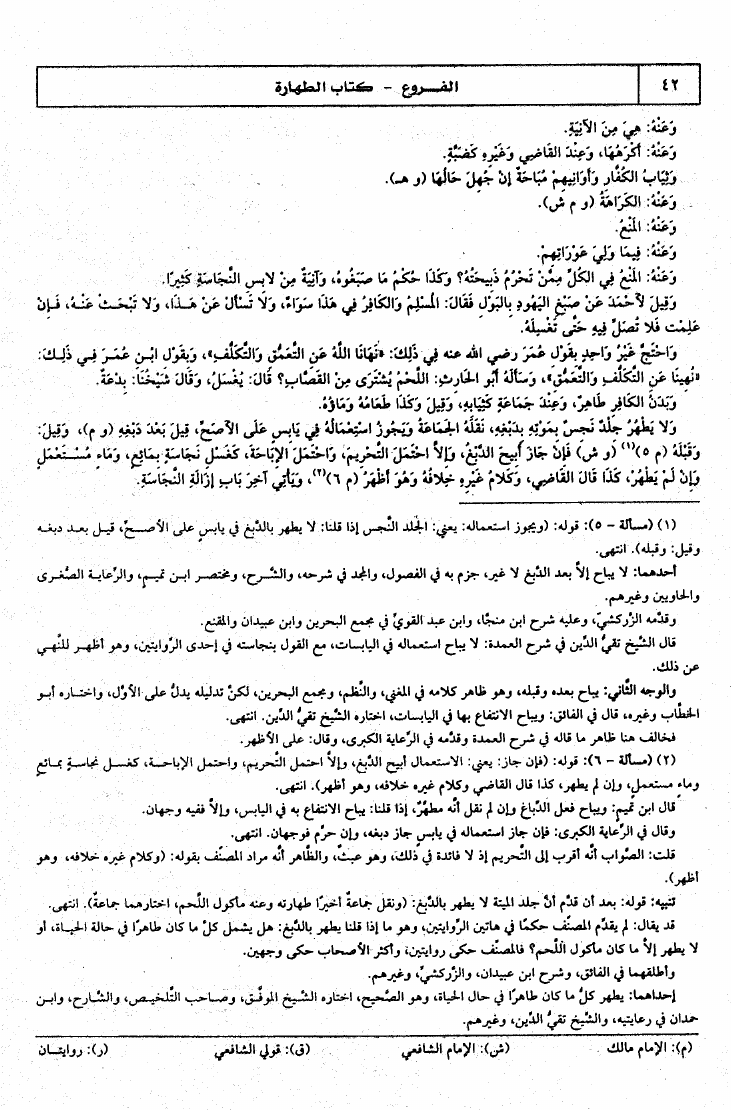 ٤٢
الفـــروع - كتاب الطهارة
وَعَنْهُ: هِيَ مِنَ الآنِيَةِ.
وَعَنْهُ: أَكْرَهُهَا، وَعِنْدَ القَاضِي وَغَيْرِهِ كَضَبَّةٍ.
وَثِيَابُ الكُفَّارِ وَأَوَانِيهِمْ مُبَاحَةٌ إنْ جُهِلَ حَالُهَا (و هـ).
وَعَنْهُ: الكَرَاهَةُ (و م ش).
وَعَنْهُ: المَنْعُ.
وَعَنْهُ: فِيمَا وَلِيَ عَوْرَاتِهِمْ.
وَعَنْهُ: المَنْعُ فِي الكُلِّ مِمَّنْ تَحْرُمُ ذَبِيحَتُهُ؟ وَكَذَا حُكْمُ مَا صَبَغُوهُ، وَآنِيَةُ مِنْ لابِسِ النَّجَاسَةِ كَثِيرًا.
وَقِيلَ لأَحْمَدَ عَنْ صَبْغِ اليَهُودِ بِالبَوْلِ فَقَالَ: المُسْلِمُ وَالكَافِرُ فِي هَذَا سَوَاءٌ، وَلا تَسْأَلْ عَنْ هَـذَا، وَلا تَبْحَثْ عَنْـهُ، فَـإِنْ
عَلِمْت فَلا تُصَلِّ فِيهِ حَتَّى تَغْسِلَهُ.
وَاحْتَجَّ غَيْرُ وَاحِدٍ بِقَوْلِ عُمَرَ رضي الله عنه فِي ذَلِكَ: «نَهَانَا اللَّهُ عَنِ التَّعَمُّقِ وَالتَّكَلُّفِ»، وَبِقَوْلِ ابْـنِ عُمَـرَ فِـي ذَلِـكَ:
«نُهِينَا عَنِ التَّكَلُّفِ وَالتَّعَمُّقِ»، وَسَأَلَهُ أَبُو الحَارِثِ: اللَّحْمُ يُشْتَرَى مِنْ القَصَّابِ؟ قَالَ: يُغْسَلُ، وَقَالَ شَيْخُنَا: بِدْعَةٌ.
وَبَدَنُ الكَافِرِ طَاهِرٌ، وَعِنْدَ جَمَاعَةٍ كَثِيَابِهِ، وَقِيلَ وَكَذَا طَعَامُهُ وَمَاؤُهُ.
وَلا يَطْهُرُ جِلْدٌ نَجِسٌ بِمَوْتِهِ بِدَبْغِهِ، نَقَلَهُ الجَمَاعَةُ وَيَجُوزُ اسْتِعْمَالُهُ فِي يَابِسٍ عَلَى الأَصَحِّ، قِيلَ بَعْدَ دَبْغِهِ (و م)، وَقِيلَ:
وَقَبْلَهُ (م ٥)(١) (و ش) فَإِنْ جَازَ أُبِيحَ الدَّبْغُ، وَإِلاَّ احْتَمَلَ التَّحْرِيمَ، وَاحْتَمَلَ الإِبَاحَةَ، كَغَسْلِ نَجَاسَةٍ بِمَائِعٍ، وَمَاءٍ مُسْـتَعْمَلٍ
وَإِنْ لَمْ يَطْهُرْ، كَذَا قَالَ القَاضِي، وَكَلامُ غَيْرِهِ خِلافُهُ وَهُوَ أَظْهَرُ (م ٦)(٢)، وَيَأْتِي آخِرَ بَابِ إزَالَةِ النَّجَاسَةِ.
(١) (مسألة - ٥): قوله: (ويجوز استعماله: يعني: الجلد النَّجس إذا قلنا: لا يطهر بالدَّبغ في يابسٍ على الأصـحِّ، قيـل بعـد دبغـه
وقيل: وقبله). انتهى.
أحدهما: لا يباح إلاَّ بعد الدَّبغ لا غير، جزم به في الفصول، والمجد في شرحه، والشَّرح، ومختصر ابـن تميـم، والرِّعايـة الصُّغرى
والحاويين وغيرهم.
وقدَّمه الزَّركشيُّ، وعليه شرح ابن منجَّا، وابن عبد القويِّ في مجمع البحرين وابن عبيدان والمقنع.
قال الشَّيخ تقيُّ الدِّين في شرح العمدة: لا يباح استعماله في اليابسات، مع القول بنجاسته في إحدى الرِّوايتين، وهو أظهـر للنَّهـي
عن ذلك.
والوجه الثَّاني: يباح بعده وقبله، وهو ظاهر كلامه في المغني، والنَّظم، ومجمع البحرين، لكنْ تدليله يدلُّ على الأوَّل، واختـاره أبـو
الخطَّاب وغيره، قال في الفائق: ويباح الانتفاع بها في اليابسات، اختاره الشَّيخ تقيُّ الدِّين. انتهى.
فخالف هنا ظاهر ما قاله في شرح العمدة وقدَّمه في الرِّعاية الكبرى، وقال: على الأظهر.
(٢) (مسألة - ٦): قوله: (فإن جاز: يعني: الاستعمال أبيح الدَّبغ، وإلاَّ احتمل التَّحريم، واحتمل الإباحـة، كغسـل نجاسـةٍ بمـائعٍ
وماءٍ مستعملٍ، وإن لم يطهر، كذا قال القاضي وكلام غيره خلافه، وهو أظهر). انتهى.
قال ابن تميمٍ: ويباح فعل الدِّباغ وإن لم نقل أنَّه مطهِّرٌ، إذا قلنا: يباح الانتفاع به في اليابس، وإلاَّ ففيه وجهان.
وقال في الرِّعاية الكبرى: فإن جاز استعماله في يابسٍ جاز دبغه، وإن حرِّم فوجهان. انتهى.
قلت: الصَّواب أنَّه أقرب إلى التَّحريم إذ لا فائدة في ذلك، وهو عبثٌ، والظَّاهر أنَّه مراد المصنِّف بقوله: (وكلام غيره خلافه، وهو
أظهر).
تنبيه: قوله: بعد أن قدَّم أنَّ جلد الميتة لا يطهر بالدَّبغ: (ونقل جماعةٌ أخيرًا طهارته وعنه مأكول اللَّحم، اختارهما جماعةٌ). انتهى.
قد يقال: لم يقدِّم المصنِّف حكمًا في هاتين الرِّوايتين، وهو ما إذا قلنا يطهر بالدَّبغ: هل يشمل كلَّ ما كان طاهرًا في حالة الحيـاة، أو
لا يطهر إلاَّ ما كان مأكول اللَّحم؟ فالمصنِّف حكى روايتين، وأكثر الأصحاب حكى وجهين.
وأطلقهما في الفائق، وشرح ابن عبيدان، والزَّركشيِّ، وغيرهم.
إحداهما: يطهر كلُّ ما كان طاهرًا في حال الحياة، وهو الصَّحيح، اختاره الشَّيخ الموفَّق، وصـاحب التَّلخيـص، والشَّارح، وابـن
حمدان في رعايتيه، والشَّيخ تقيُّ الدِّين، وغيرهم.
(م): الإمام مالك (ش): الإمام الشافعي (ق): قولي الشافعي (ر): روايتـان